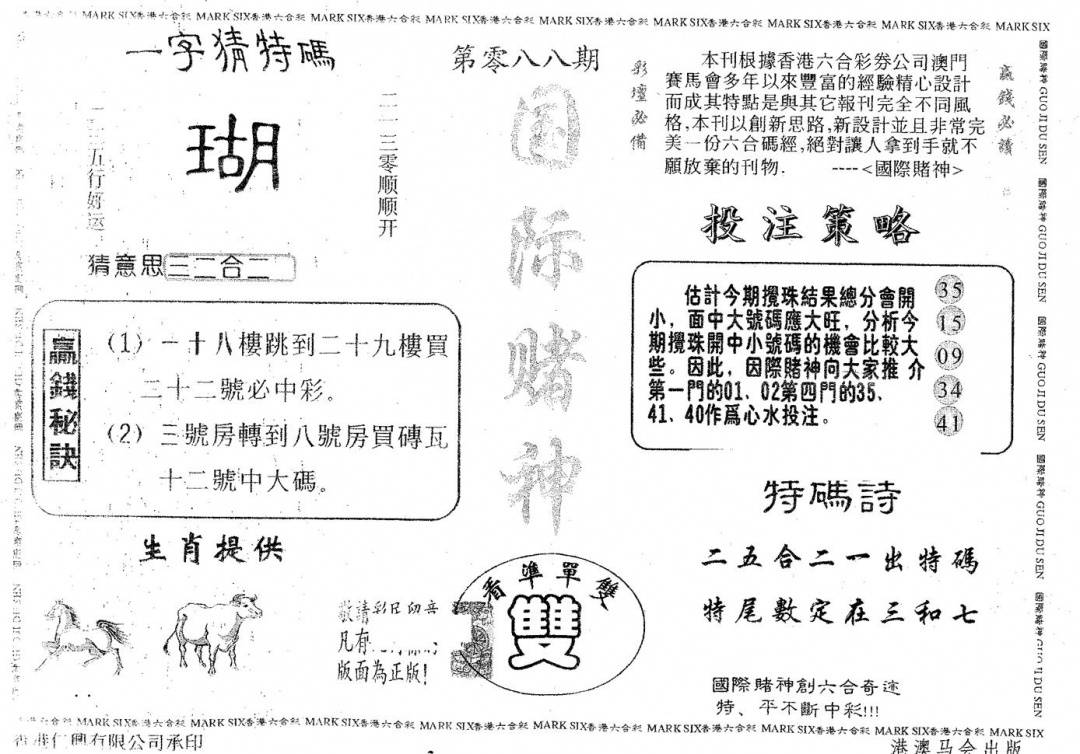 MARK SIX香港六合彩 MARK SIX香港六合彩 MARK SIX香港六合彩 MARK SIX香港六合彩 MARK SIX香港六合彩 MARK SIX香港六合彩 MARK SIX香港六合彩 MARK SIX香港六合彩 MARK SIX
一字猜特碼
第零八八期
瑚
五行好运
二一三零顺顺开
猜意思三二合二
国际赌神
彩壇必備
本刊根據香港六合彩券公司澳門
賽馬會多年以來豐富的經驗精心設計
而成其特點是與其它報刊完全不同風
格,本刊以創新思路,新設計並且非常完
美一份六合碼經,絕對讓人拿到手就不
願放棄的刊物. ----<國際賭神>
贏錢必讀
投注策略
估計今期攪珠結果總分會開
小，面中大號碼應大旺，分析今
期攪珠開中小號碼的機會比較大
些。因此，因際賭神向大家推 介
第一門的01、02第四門的35、
41、40作爲心水投注。
35
15
09
34
41
贏錢秘訣
(1) 一十八樓跳到二十九樓買
二十二號必中彩。
(2) 三號房轉到八號房買磚瓦
十二號中大碼。
生肖提供
敬請彩民留意
凡有
版面為正版!
看準單雙
雙
特碼詩
二五合二一出特碼
特尾數定在三和七
國際賭神創六合奇迹
特、平不斷中彩!!!
國際賭神 GUO JI DU SEN 國際賭神 GUO JI DU SEN 國際賭神 GUO JI DU SEN 國際賭神 GUO JI DU SEN 國際賭神 GUO JI DU SEN
MARK SIX香港六合彩 MARK SIX香港六合彩 MARK SIX香港六合彩 MARK SIX香港六合彩 MARK SIX香港六合彩 MARK SIX香港六合彩 MARK SIX香港六合彩 MARK SIX香港六合彩 MARK SIX
香港仁興有限公司承印
港澳马会出版